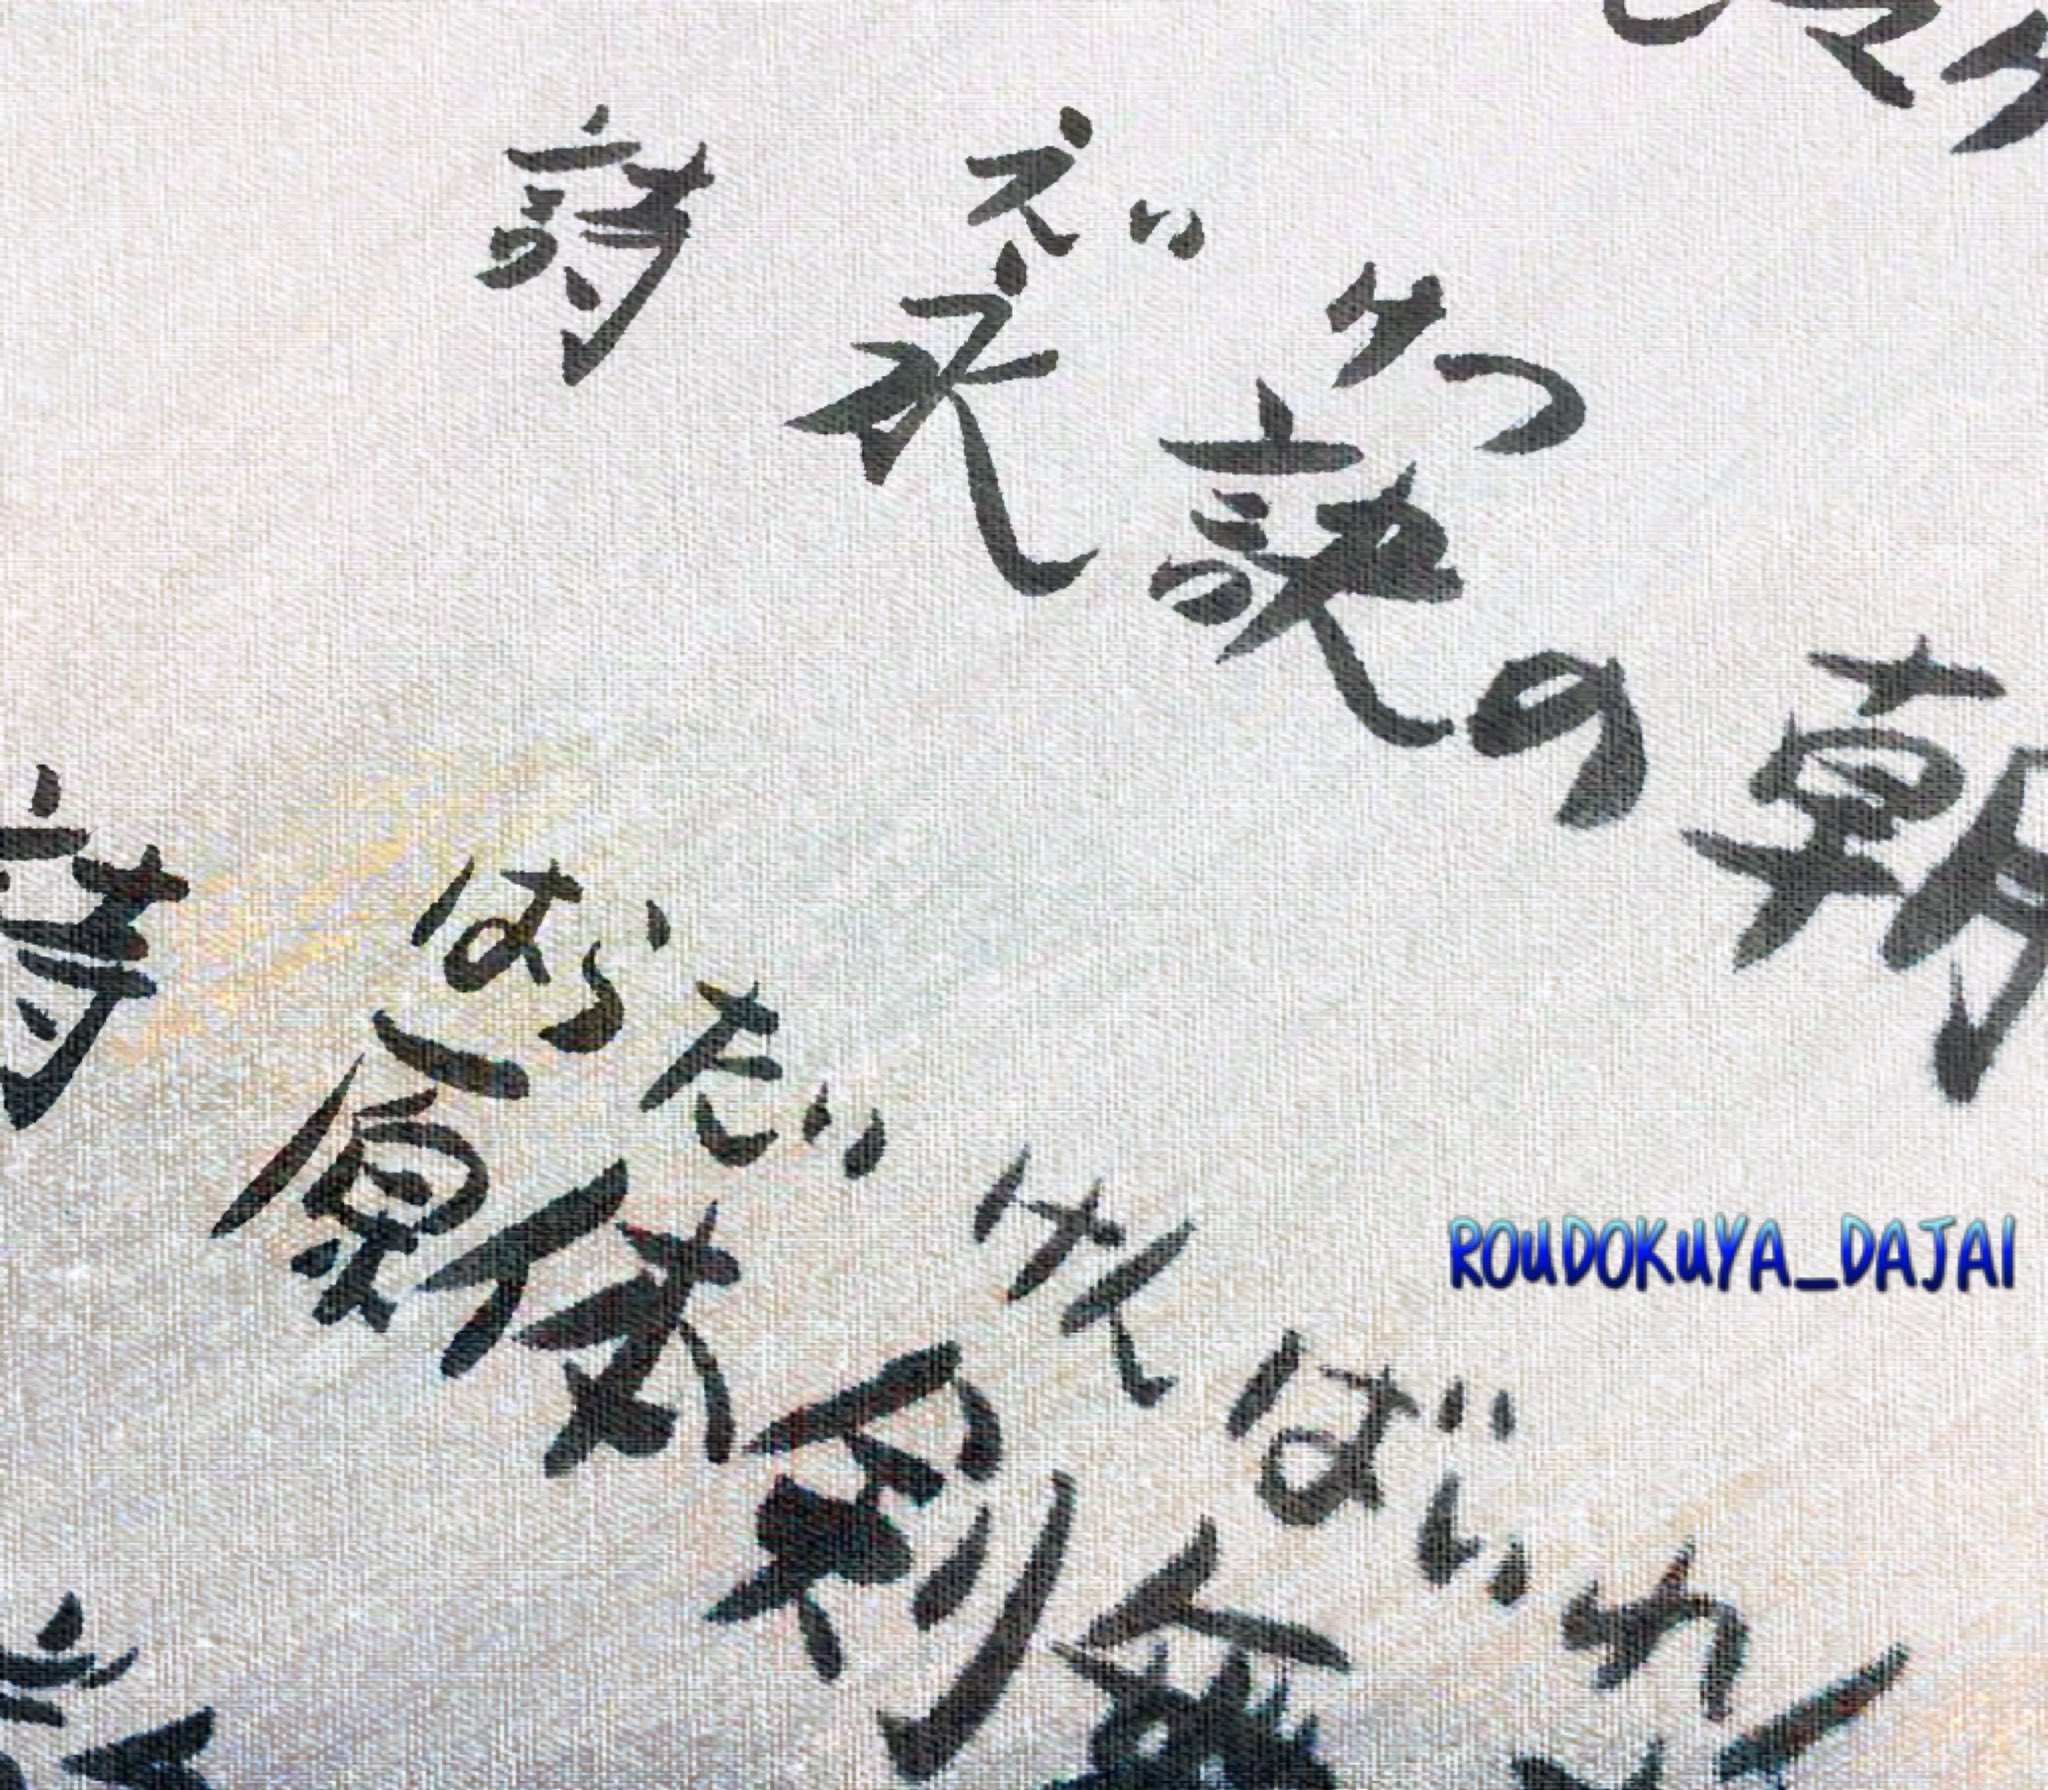 詩 永訣の朝
えい けつ
詩 原体剣舞
はらたい けんばいれん
ROUDOKUYA_DAJAI